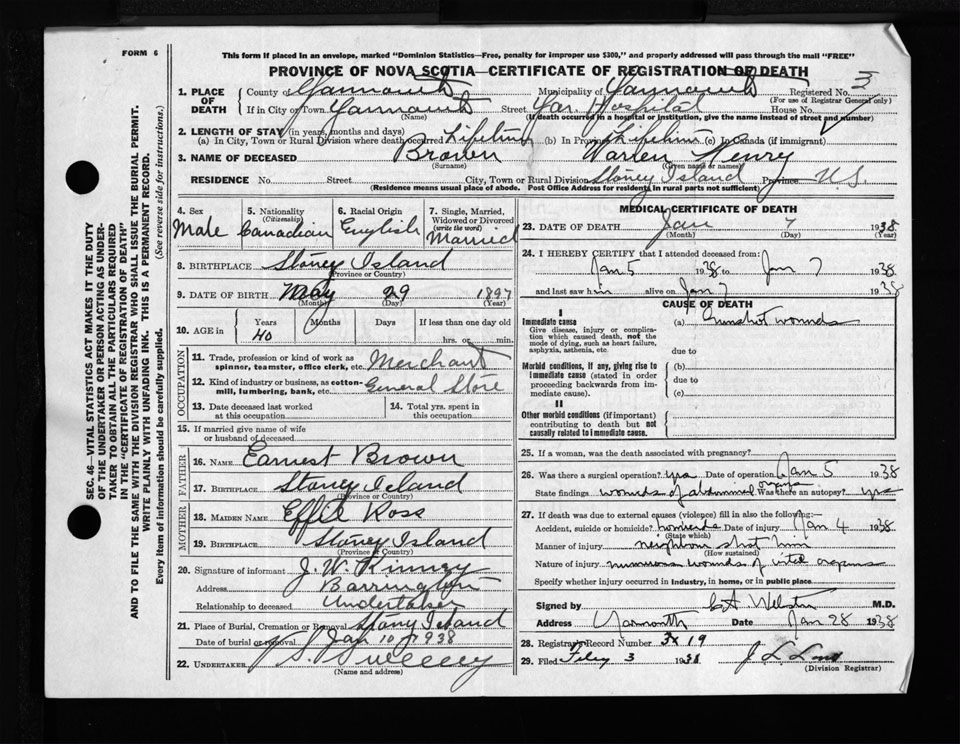 FORM 6
This form if placed in an envelope, marked "Dominion Statistics—Free, penalty for improper use $300," and properly addressed will pass through the mail "FREE"
PROVINCE OF NOVA SCOTIA—CERTIFICATE OF REGISTRATION OF DEATH
1. PLACE OF DEATH
County of Yarmouth Municipality of Yarmouth Registered No. 3
(For use of Registrar General only)
If in City or Town Yarmouth Street Yar. Hospital House No.
(Name) (If death occurred in a hospital or institution, give its name instead of street and number)
2. LENGTH OF STAY (in years, months and days)
(a) In City, Town or Rural Division where death occurred Lifetime (b) In Province Lifetime (c) In Canada (if immigrant)
3. NAME OF DECEASED Brown Warren Henry
(Surname) (Given name or names)
RESIDENCE No. Street City, Town or Rural Division Stoney Island Province N.S.
(Residence means usual place of abode. Post Office Address for residents in rural parts not sufficient)
4. Sex
Male
5. Nationality
(Citizenship)
Canadian
6. Racial Origin
English
7. Single, Married, Widowed or Divorced
(write the word)
Married
8. BIRTHPLACE Stoney Island
(Province or Country)
9. DATE OF BIRTH May 29 1897
(Month) (Day) (Year)
10. AGE in Years Months Days If less than one day old
40 hrs. or min.
OCCUPATION
11. Trade, profession or kind of work as spinner, teamster, office clerk, etc. Merchant
12. Kind of industry or business, as cotton-mill, lumbering, bank, etc. General Store
13. Date deceased last worked at this occupation
14. Total yrs. spent in this occupation
15. If married give name of wife or husband of deceased
FATHER
16. NAME Earnest Brown
17. BIRTHPLACE Stoney Island
(Province or Country)
MOTHER
18. MAIDEN NAME Effie Ross
19. BIRTHPLACE Stoney Island
(Province or Country)
20. Signature of informant J. W. Kinney
Address Barrington
Relationship to deceased Undertaker
21. Place of Burial, Cremation or Removal Stoney Island
Date of burial or removal Jan 10 1938
22. UNDERTAKER Sweeney
(Name and address)
MEDICAL CERTIFICATE OF DEATH
23. DATE OF DEATH Jan 7 1938
(Month) (Day) (Year)
24. I HEREBY CERTIFY that I attended deceased from:
Jan 5 1938 to Jan 7 1938
and last saw him alive on Jan 7 1938
CAUSE OF DEATH
I
Immediate cause
Give disease, injury or complication which caused death, not the mode of dying, such as heart failure, asphyxia, asthenia, etc.
(a) Gunshot wounds
due to
Morbid conditions, if any, giving rise to immediate cause (stated in order proceeding backwards from immediate cause).
(b)
due to
(c)
II
Other morbid conditions (if important) contributing to death but not causally related to immediate cause.
25. If a woman, was the death associated with pregnancy?
26. Was there a surgical operation? yes Date of operation Jan 5 1938
State findings wounds of abdominal organs Was there an autopsy? yes
27. If death was due to external causes (violence) fill in also the following:—
Accident, suicide or homicide? homicide Date of injury Jan 4 1938
(State which)
Manner of injury neighbour shot him
(How sustained)
Nature of injury numerous wounds of vital organs
Specify whether injury occurred in industry, in home, or in public place
Signed by M.D.
Address Yarmouth Date Jan 28 1938
28. Registrar's Record Number 19
29. Filed 3 1938
(Division Registrar)
SEC. 46—VITAL STATISTICS ACT MAKES IT THE DUTY
OF THE UNDERTAKER OR PERSON ACTING AS UNDER-
TAKER TO OBTAIN ALL THE PARTICULARS REQUIRED
IN THE "CERTIFICATE OF REGISTRATION OF DEATH"
AND TO FILE THE SAME WITH THE DIVISION REGISTRAR WHO SHALL ISSUE THE BURIAL PERMIT.
WRITE PLAINLY WITH UNFADING INK. THIS IS A PERMANENT RECORD.
Every item of information should be carefully supplied. (See reverse side for instructions.)